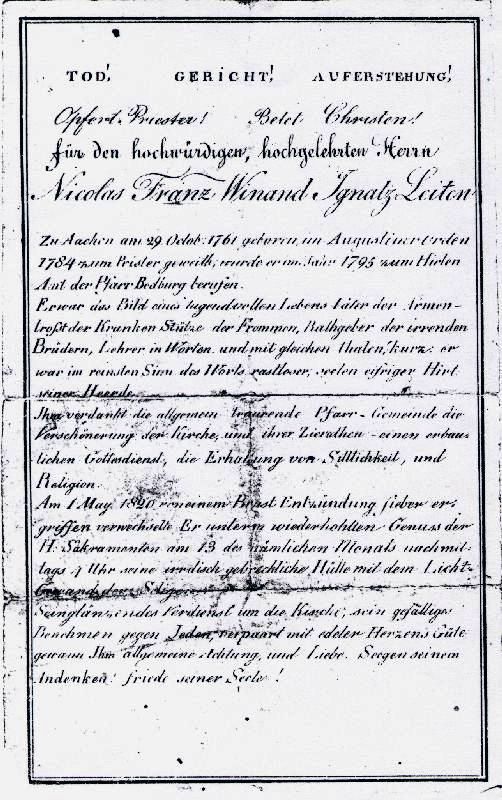 TOD! GERICHT! AUFERSTEHUNG!
Opfert Priester! Betet Christen!
für den hochwürdigen, hochgelehrten Herrn
Nicolas Franz Winand Ignatz Leiten
Zu Aachen am 29 Octob: 1761 geboren, im Augustiner Orden
1784 zum Prister geweiht, wurde er im Jahr 1795 zum Hirten
Amt der Pfarr Bedburg berufen.
Er war das Bild eines tugendvollen Lebens Vater der Armen-
trost der Kranken Stütze der Frommen, Rathgeber der irrenden
Brüdern, Lehrer in Worten und mit gleichen thaten, kurz: er
war im reinsten Sinn des Worts rastloser, seelen eifriger Hirt
seiner Heerde.
Ihm verdankt die allgemein traurende Pfarr-Gemeinde die
Verschönerung der Kirche, und ihrer Zierathen - einen erbau-
lichen Gottesdienst, die Erhaltung von Sittlichkeit, und
Religion.
Am 1 May 1820 von einem Brust Entzündung fieber er-
greffen verwechselte Er unterm wiederhohlten Genuss der
H: Sakramenten am 13 des nämlichen Monats nachmit-
tags 4 Uhr seine irrdisch gebrechliche Hülle mit dem Licht-
Gewand der
Sein glänzendes Verdienst um die Kirche, sein gefälliges
Benehmen gegen Jeden, verpaart mit edeler Herzens Güte
gewann Ihm allgemeine Achtung, und Liebe. Seegen seinem
Andenken! friede seiner Seele!